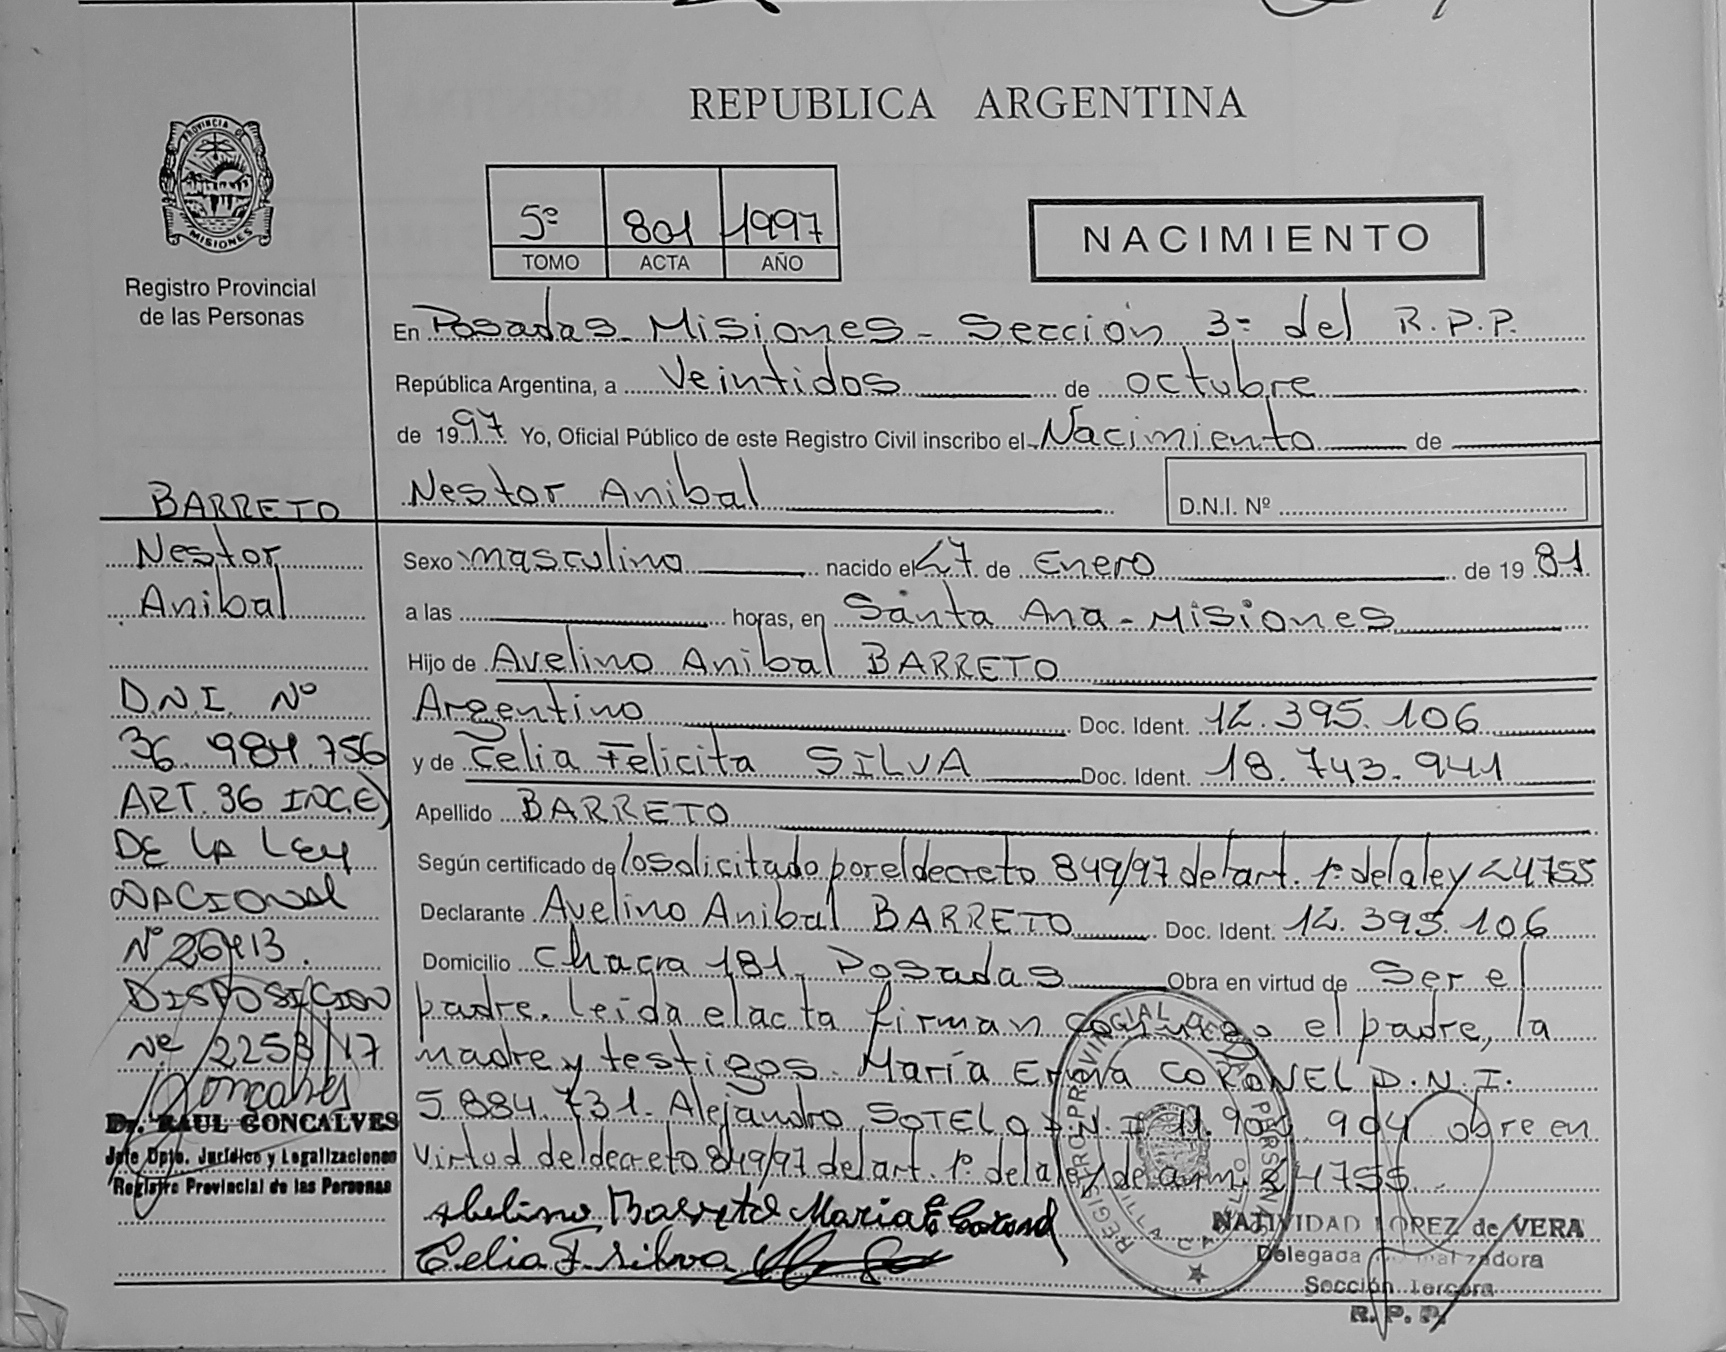 REPUBLICA ARGENTINA
PROVINCIA DE
MISIONES
Registro Provincial
de las Personas
5º 801 1997
TOMO ACTA AÑO
NACIMIENTO
En Posadas - Misiones - Sección 3º del R.P.P.
República Argentina, a Veintidos de octubre
de 1997 Yo, Oficial Público de este Registro Civil inscribo el Nacimiento de
Nestor Anibal
D.N.I. Nº
Sexo masculino nacido el 27 de Enero de 1981
a las horas, en Santa Ana - Misiones
Hijo de Avelino Anibal BARRETO
Argentino Doc. Ident. 12.395.106
y de Celia Felicita SILVA Doc. Ident. 18.743.941
Apellido BARRETO
Según certificado de lo solicitado por el decreto 849/97 del art. 1º de la ley 24755
Declarante Avelino Anibal BARRETO Doc. Ident. 12.395.106
Domicilio Chacra 181 - Posadas Obra en virtud de Ser el
padre. leída el acta firman conmigo el padre, la
madre y testigos. María CORONEL D.N.I.
5.884.731. Alejandro SOTELO D.N.I. 904 obre en
virtud del decreto 849/97 del art. 1º de la ley 24755
BARRETO
Nestor
Anibal
D.N.I. Nº
36 984 756
ART. 36 INC E)
DE LA LEY
NACIONAL
Nº 26413.
DISPOSICION
Nº 2258/17
Goncalves
Dr. RAUL GONCALVES
Jefe Dpto. Jurídico y Legalizaciones
Registro Provincial de las Personas
Avelino Barreto Maria E. Coronel
Celia F. silva
REGISTRO PROVINCIAL DE LAS PERSONAS
NATIVIDAD LOPEZ de VERA
Delegada Normalizadora
Sección Tercera
R. P. P.